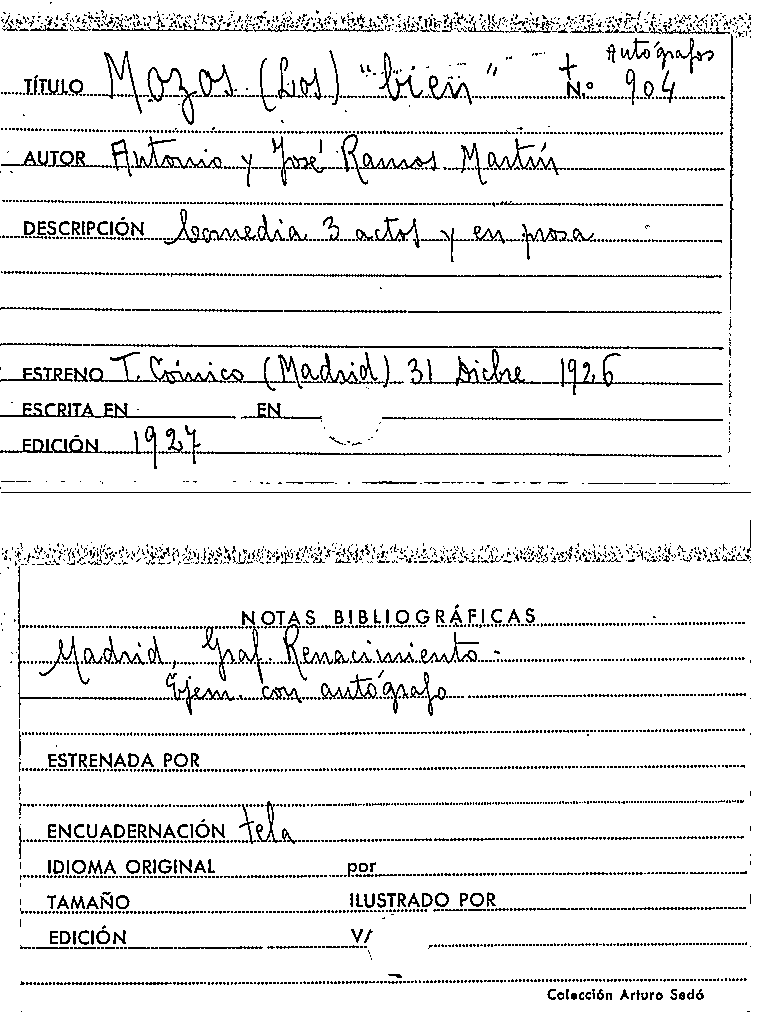 Autógrafos
TÍTULO Mozos (Los) "bien" + N.º 904
AUTOR Antonio y José Ramos Martín
DESCRIPCIÓN Comedia 3 actos y en prosa
ESTRENO T. Cómico (Madrid) 31 Dicbre 1926
ESCRITA EN EN
EDICIÓN 1927
NOTAS BIBLIOGRÁFICAS
Madrid, Graf. Renacimiento -
Ejem. con autógrafo
ESTRENADA POR
ENCUADERNACIÓN tela
IDIOMA ORIGINAL por
TAMAÑO ILUSTRADO POR
EDICIÓN V/
Colección Arturo Sedó